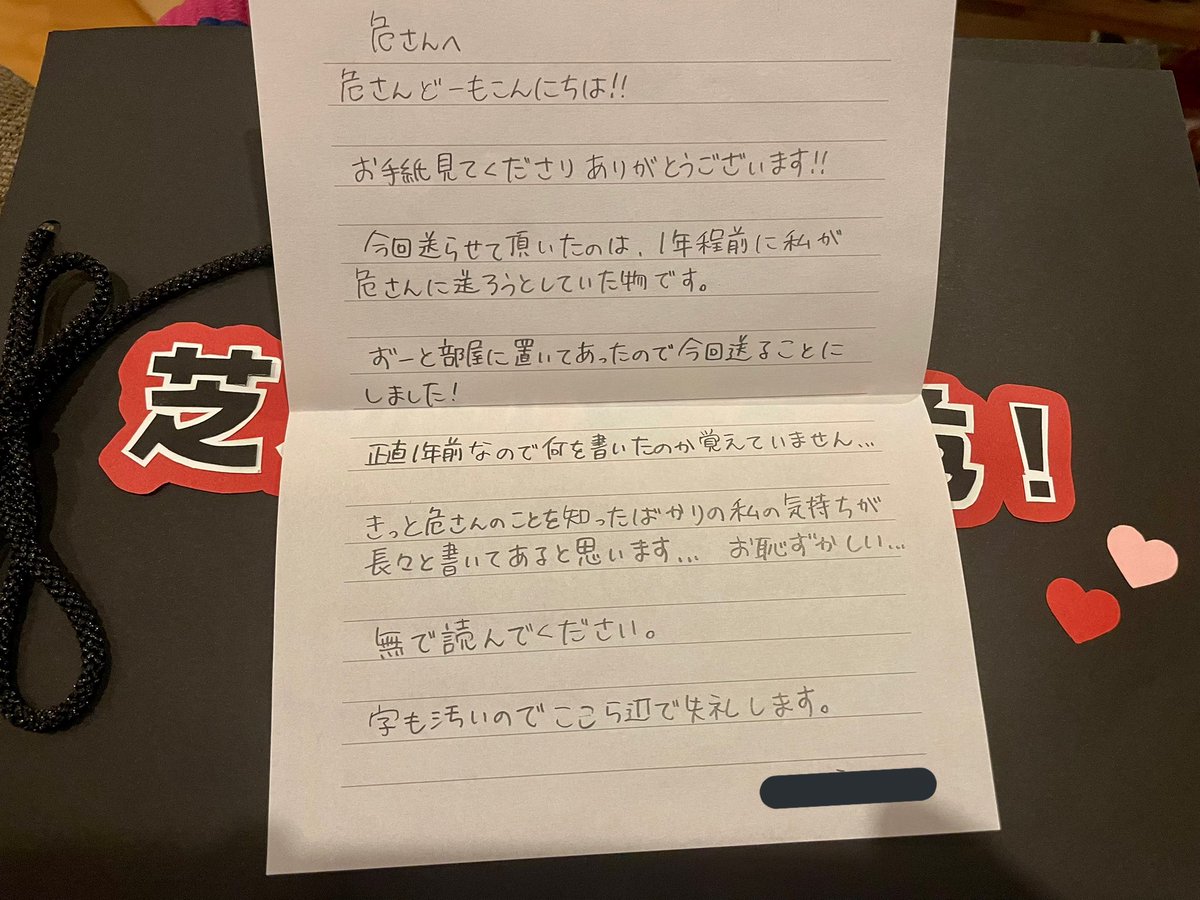 危さんへ
危さんどーもこんにちは!!
お手紙見てくださりありがとうございます!!
今回送らせて頂いたのは、1年程前に私が
危さんに送ろうとしていた物です。
ずーと部屋に置いてあったので今回送ることに
しました!
正直1年前なので何を書いたのか覚えていません…
きっと危さんのことを知ったばかりの私の気持ちが
長々と書いてあると思います… お恥ずかしい…
無で読んでください。
字も汚いのでここら辺で失礼します。
芝
!